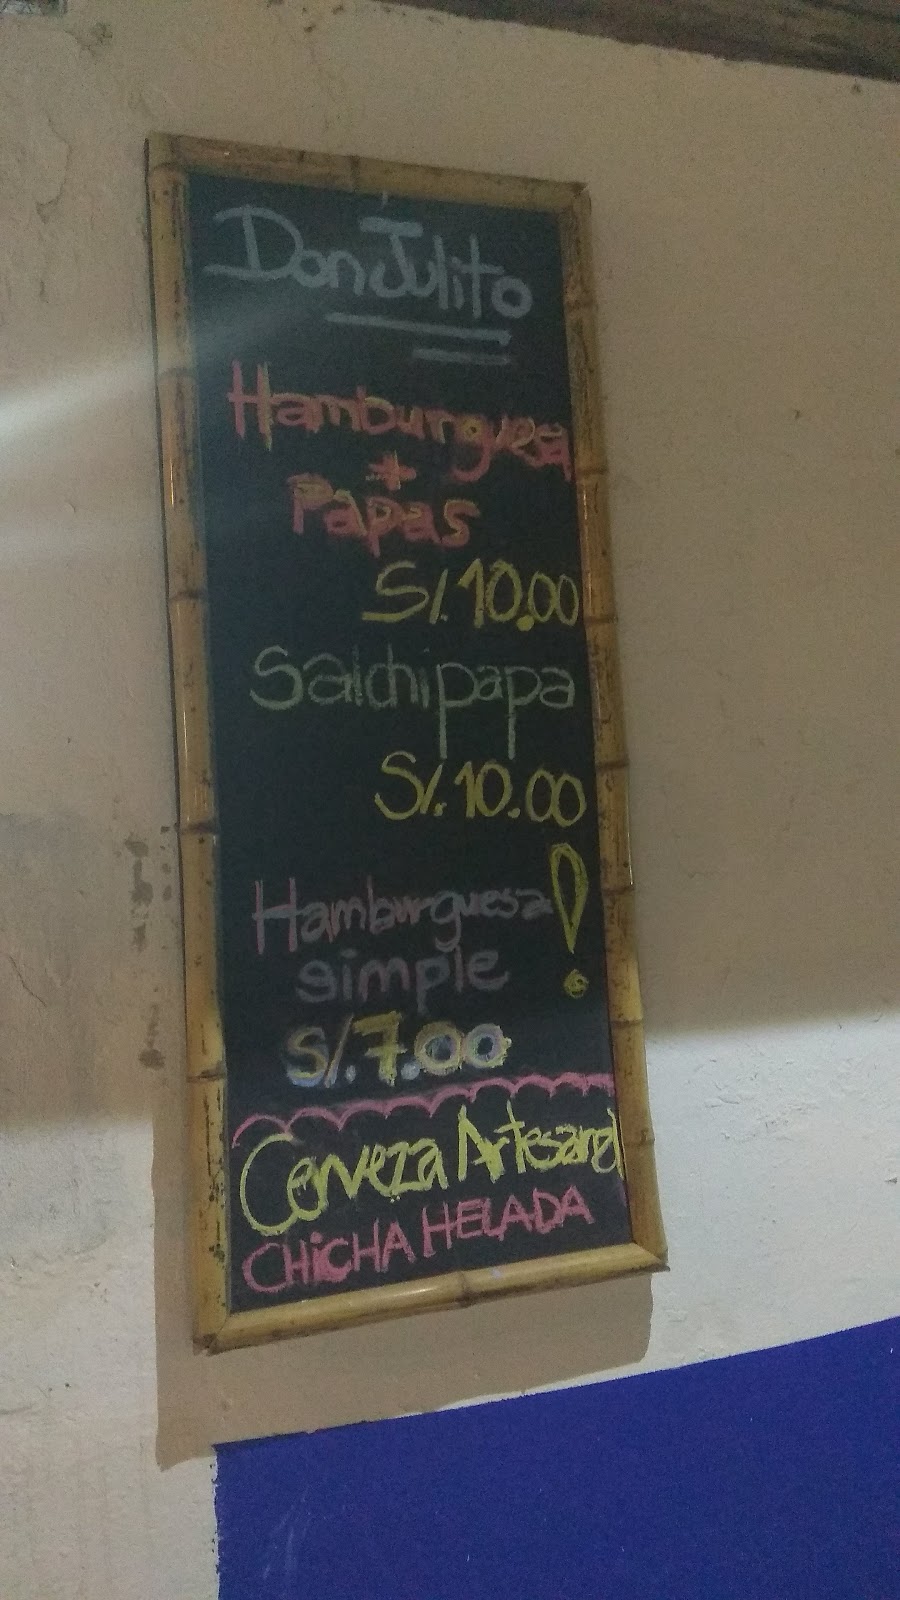 Don Julito
Hamburguesa
+
Papas
S/.10.00
Salchipapa
S/.10.00
Hamburguesa!
simple
S/.7.00
Cerveza Artesanal
CHiCHA HELADA